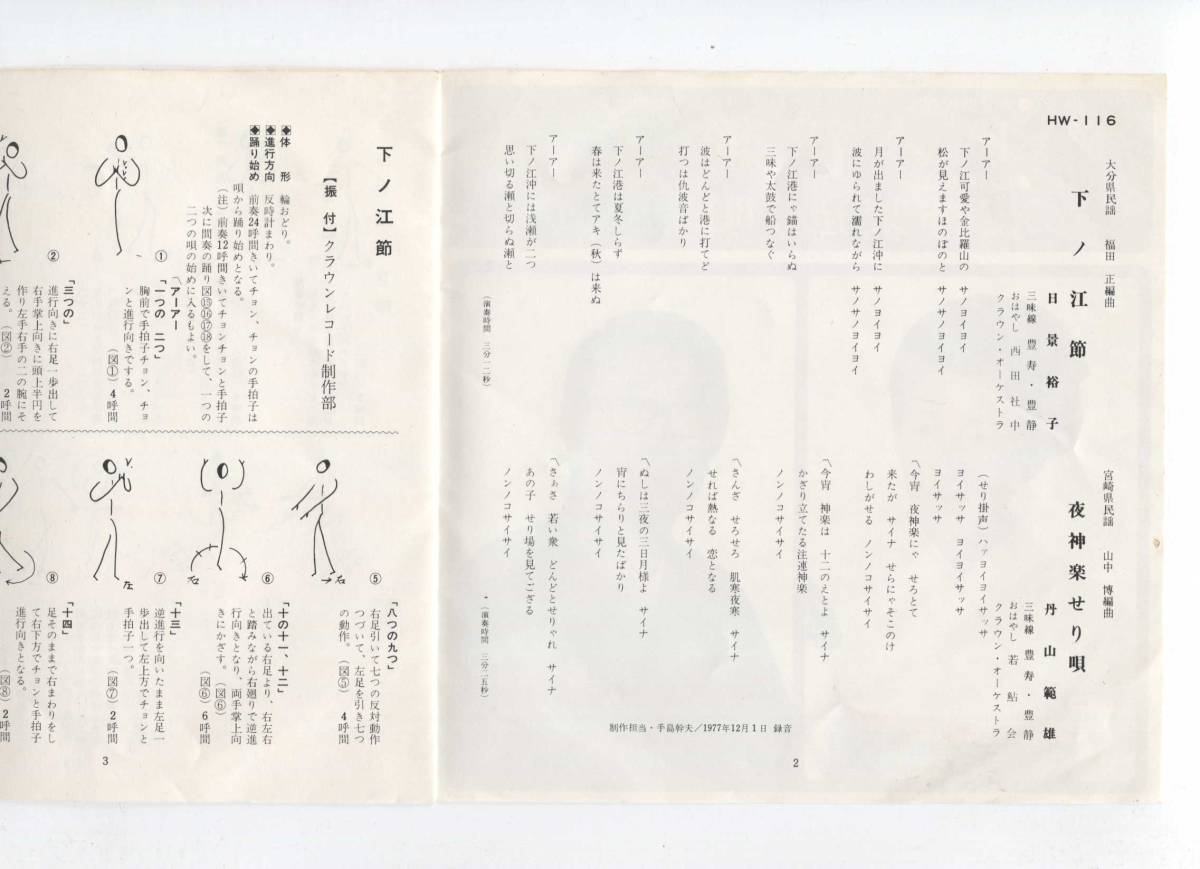 HW-116
大分県民謡　福田　正編曲
下ノ江節
日景裕子
三味線　豊寿・豊静
おはやし　西田社中
クラウン・オーケストラ
アーアー
下ノ江可愛や金比羅山の　サノヨイヨイ
松が見えますほのぼのと　サノサノヨイヨイ
アーアー
月が出ました下ノ江沖に　サノヨイヨイ
波にゆられて濡れながら　サノサノヨイヨイ
アーアー
下ノ江港にゃ錨はいらぬ
三味や太鼓で船つなぐ
アーアー
波はどんどと港に打てど
打つは仇波音ばかり
アーアー
下ノ江港は夏冬しらず
春は来たとてアキ（秋）は来ぬ
アーアー
下ノ江沖には浅瀬が二つ
思い切る瀬と切らぬ瀬と
（演奏時間　三分一二秒）
宮崎県民謡　山中　博編曲
夜神楽せり唄
丹山範雄
三味線　豊寿・豊静
おはやし　若鮎会
クラウン・オーケストラ
（せり掛声）ハァヨイヨイサッサ
ヨイサッサ　ヨイヨイサッサ
ヨイサッサ
〽今宵　夜神楽にゃ　せろとて
来たが　サイナ　せらにゃそこのけ
わしがせる　ノンノコサイサイ
〽今宵　神楽は　十二のえとよ　サイナ
かざり立てたる注連神楽
ノンノコサイサイ
〽さんざ　せろせろ　肌寒夜寒　サイナ
せれば熱なる　恋となる
ノンノコサイサイ
〽ぬしは三夜の三日月様よ　サイナ
宵にちらりと見たばかり
ノンノコサイサイ
〽さぁさ　若い衆　どんどとせりゃれ　サイナ
あの子　せり場を見てござる
ノンノコサイサイ
・（演奏時間　三分二五秒）
制作担当・手島幹夫／1977年12月1日 録音
2
下ノ江節
【振　付】クラウンレコード制作部
◆体　形　輪おどり。
◆進行方向　反時計まわり。
◆踊り始め　前奏24呼間きいてチョン、チョンの手拍子は
唄から踊り始めとなる。
（注）前奏12呼間きいてチョンチョンと手拍子
次に間奏の踊り図⑮⑯⑰⑱をして、一つの
二つの唄の始めに入るもよい。
①
〽アーアー
「一つの　二つ」
胸前で手拍子チョン、チョ
ンと進行向きでする。
（図①）　4呼間
②
「三つの」
進行向きに右足一歩出して
右手掌上向きに頭上半円を
作り左手右手の二の腕にそ
える。（図②）　2呼間
⑤
右
「八つの九つ」
右足引いて七つの反対動作
つづいて、左足を引き七つ
の動作。（図⑤）　4呼間
⑥
右
右
「十の十一、十二」
出ている右足より、右左右
と踏みながら右廻りで逆進
行向きとなり、両手掌上向
きにかざす。（図⑥）
（図⑥）　6呼間
⑦
左
「十三」
逆進行を向いたまま左足一
歩出して左上方でチョンと
手拍子一つ。
（図⑦）　2呼間
⑧
「十四」
足そのままで右まわりをし
て右下方でチョンと手拍子
進行向きとなる。
（図⑧）　2呼間
3